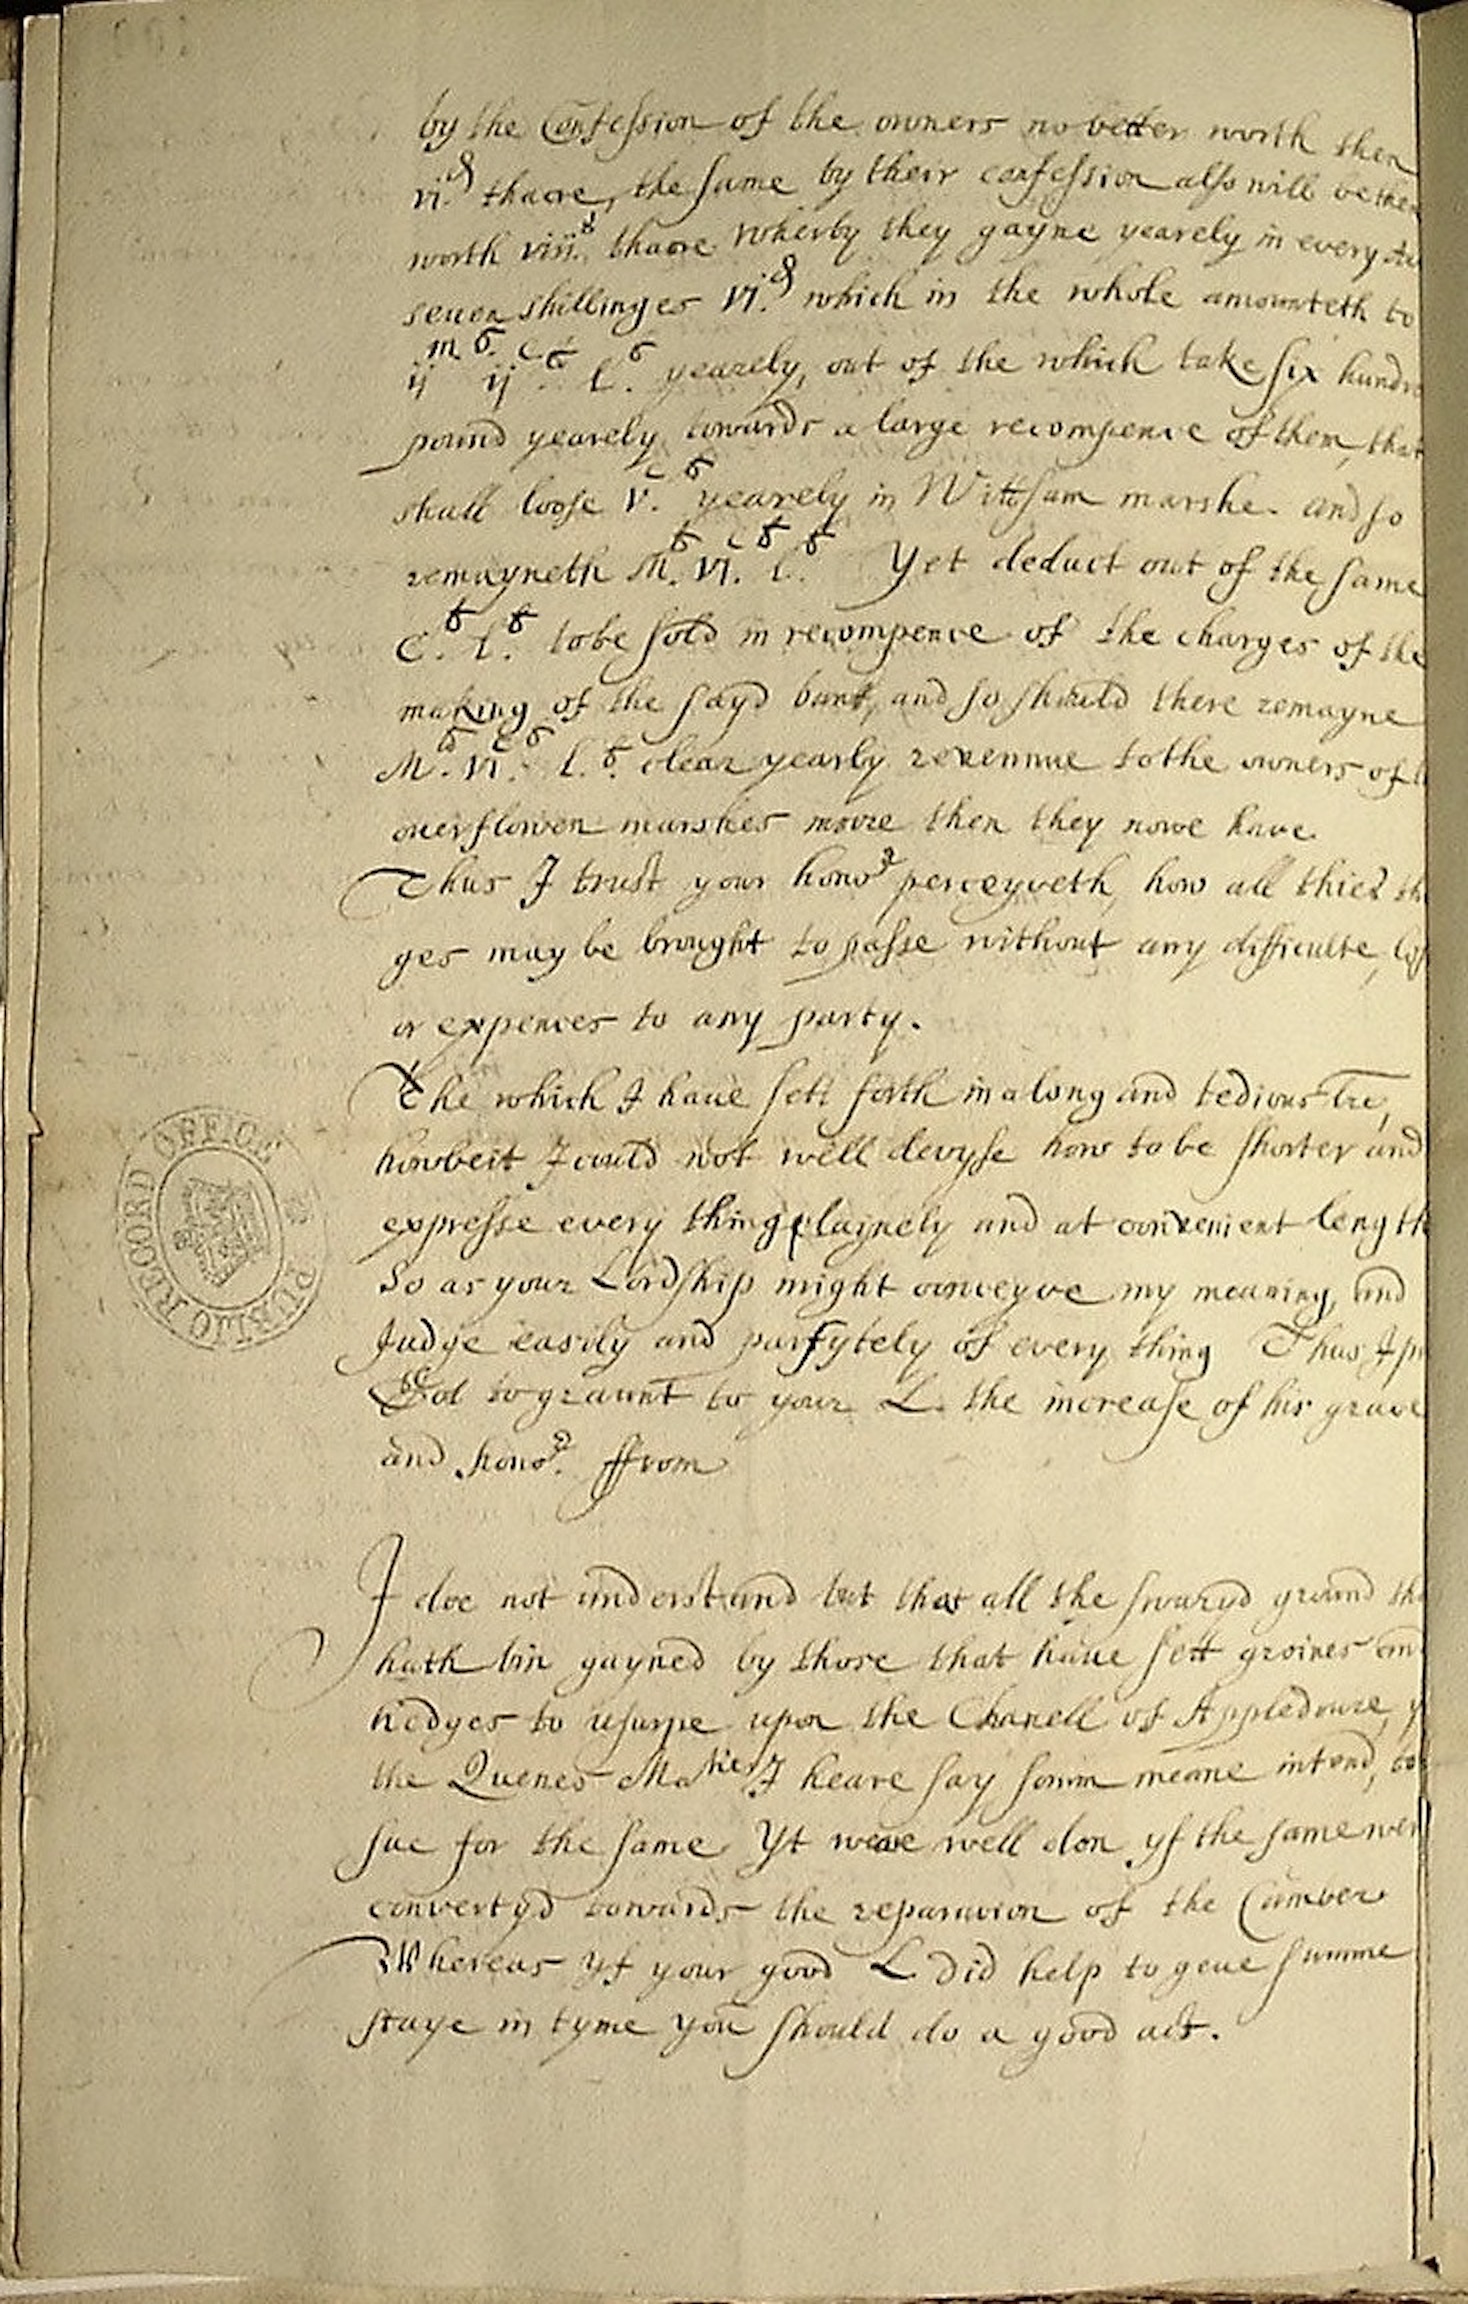 by the Confession of the owners no better worth then
vi.d thacre, the same by their confession also will be then
worth viii.s thacre wherby they gayne yearely in every
seuen shillinges vi.d which in the whole amounteth to
ij m ij c l. yearely, out of the which take six hundr
pound yearely towards a large recompence of them, that
shall loose v.c yearely in Wittsam marshe. and so
remayneth M. vi.c l. Yet deduct out of the same
C. l. to be sold in recompence of the charges of the
making of the sayd bank, and so should there remayne
M. vi.c l. clear yearly revennue to the owners of
ouerflowen marshes moore then they nowe have
Thus I trust your honor perceyveth, how all thies th
ges may be brought to passe without any difficulte,
or expences to any party.
The which I haue sett forth in a long and tedious tre,
howbeit I could not well devyse how to be shorter and
expresse every thing playnely and at convenient length
So as your Lordship might conceyve my meaning, and
Judge easily and parfytely of every thing Thus I pr
God to graunt to your L. the increase of his grace
and honor. ffrom
I doe not understand but that all the swaryd ground th
hath bin gayned by those that haue sett groines an
hedges to usurpe upon the Chanell of Appledoure,
the Quenes Maties I heare say somm meane intend, to
sue for the same Yt weare well don yf the same wer
convertyd towards the reparacion of the Camber
Whereas yf your good L. did help to geue summe
staye in tyme you should do a good act.
PUBLIC RECORD OFFICE